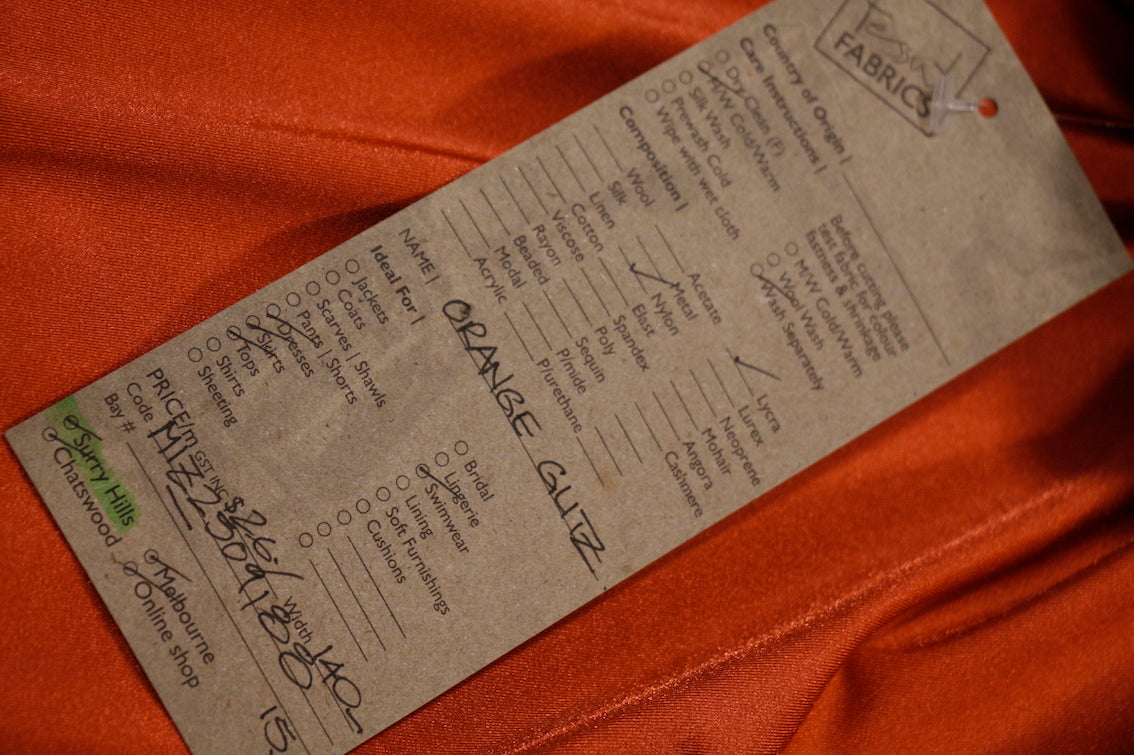 FABRICS
Country of Origin |
Care Instructions |
Dry-Clean (P)
H/W Cold/Warm
Silk Wash
Prewash Cold
Wipe with wet cloth
Before cutting please
test fabric for colour
fastness & shrinkage
M/W Cold/Warm
Wool Wash
Wash Separately
Composition |
Wool
Silk
Linen
Cotton
Viscose
Rayon
Beaded
Modal
Acrylic
Acetate
Metal
Nylon
Elast
Spandex
Poly
Sequin
P/mide
P/urethane
Lycra
Lurex
Neoprene
Mohair
Angora
Cashmere
NAME | ORANGE GLITZ
Ideal For |
Jackets
Coats
Scarves | Shawls
Pants | Shorts
Dresses
Skirts
Tops
Shirts
Sheeting
Bridal
Lingerie
Swimwear
Lining
Soft Furnishings
Cushions
PRICE/m GST ING $26 Width 140
Code
Bay # 15
Surry Hills
Chatswood
Melbourne
Online shop